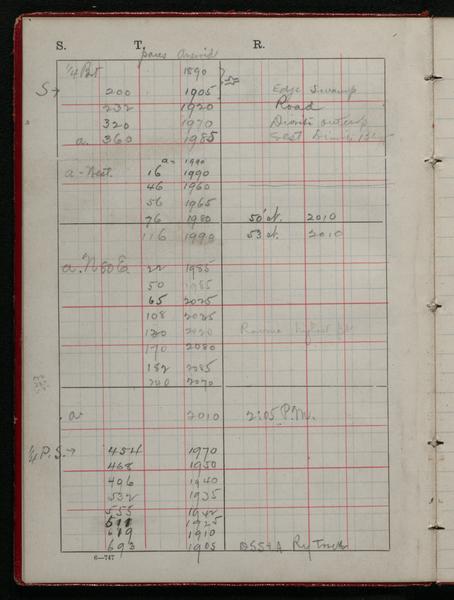 S. T. R.
paces Aneroid
1/4 Post 1890
S → 200 1905 Edge Swamp
232 1920 Road
320 1970 Diorite outcrop
a. 360 1985
a- 1990
a - West. 16 1990
46 1960
56 1965
76 1980 50' N. 2010
116 1990 53 N. 2010
a. N 80 E 22 1985
50 1985
65 2025
108 2035
130 2020 Ravine highest pt
170 2080
182 2085
200 2070
a 2010 2:05 P.M.
1/4 P. S. → 454 1970
468 1950
496 1940
532 1935
555 1942
611 1925
619 1910
693 1905 DSS & A Ry Track
6-747